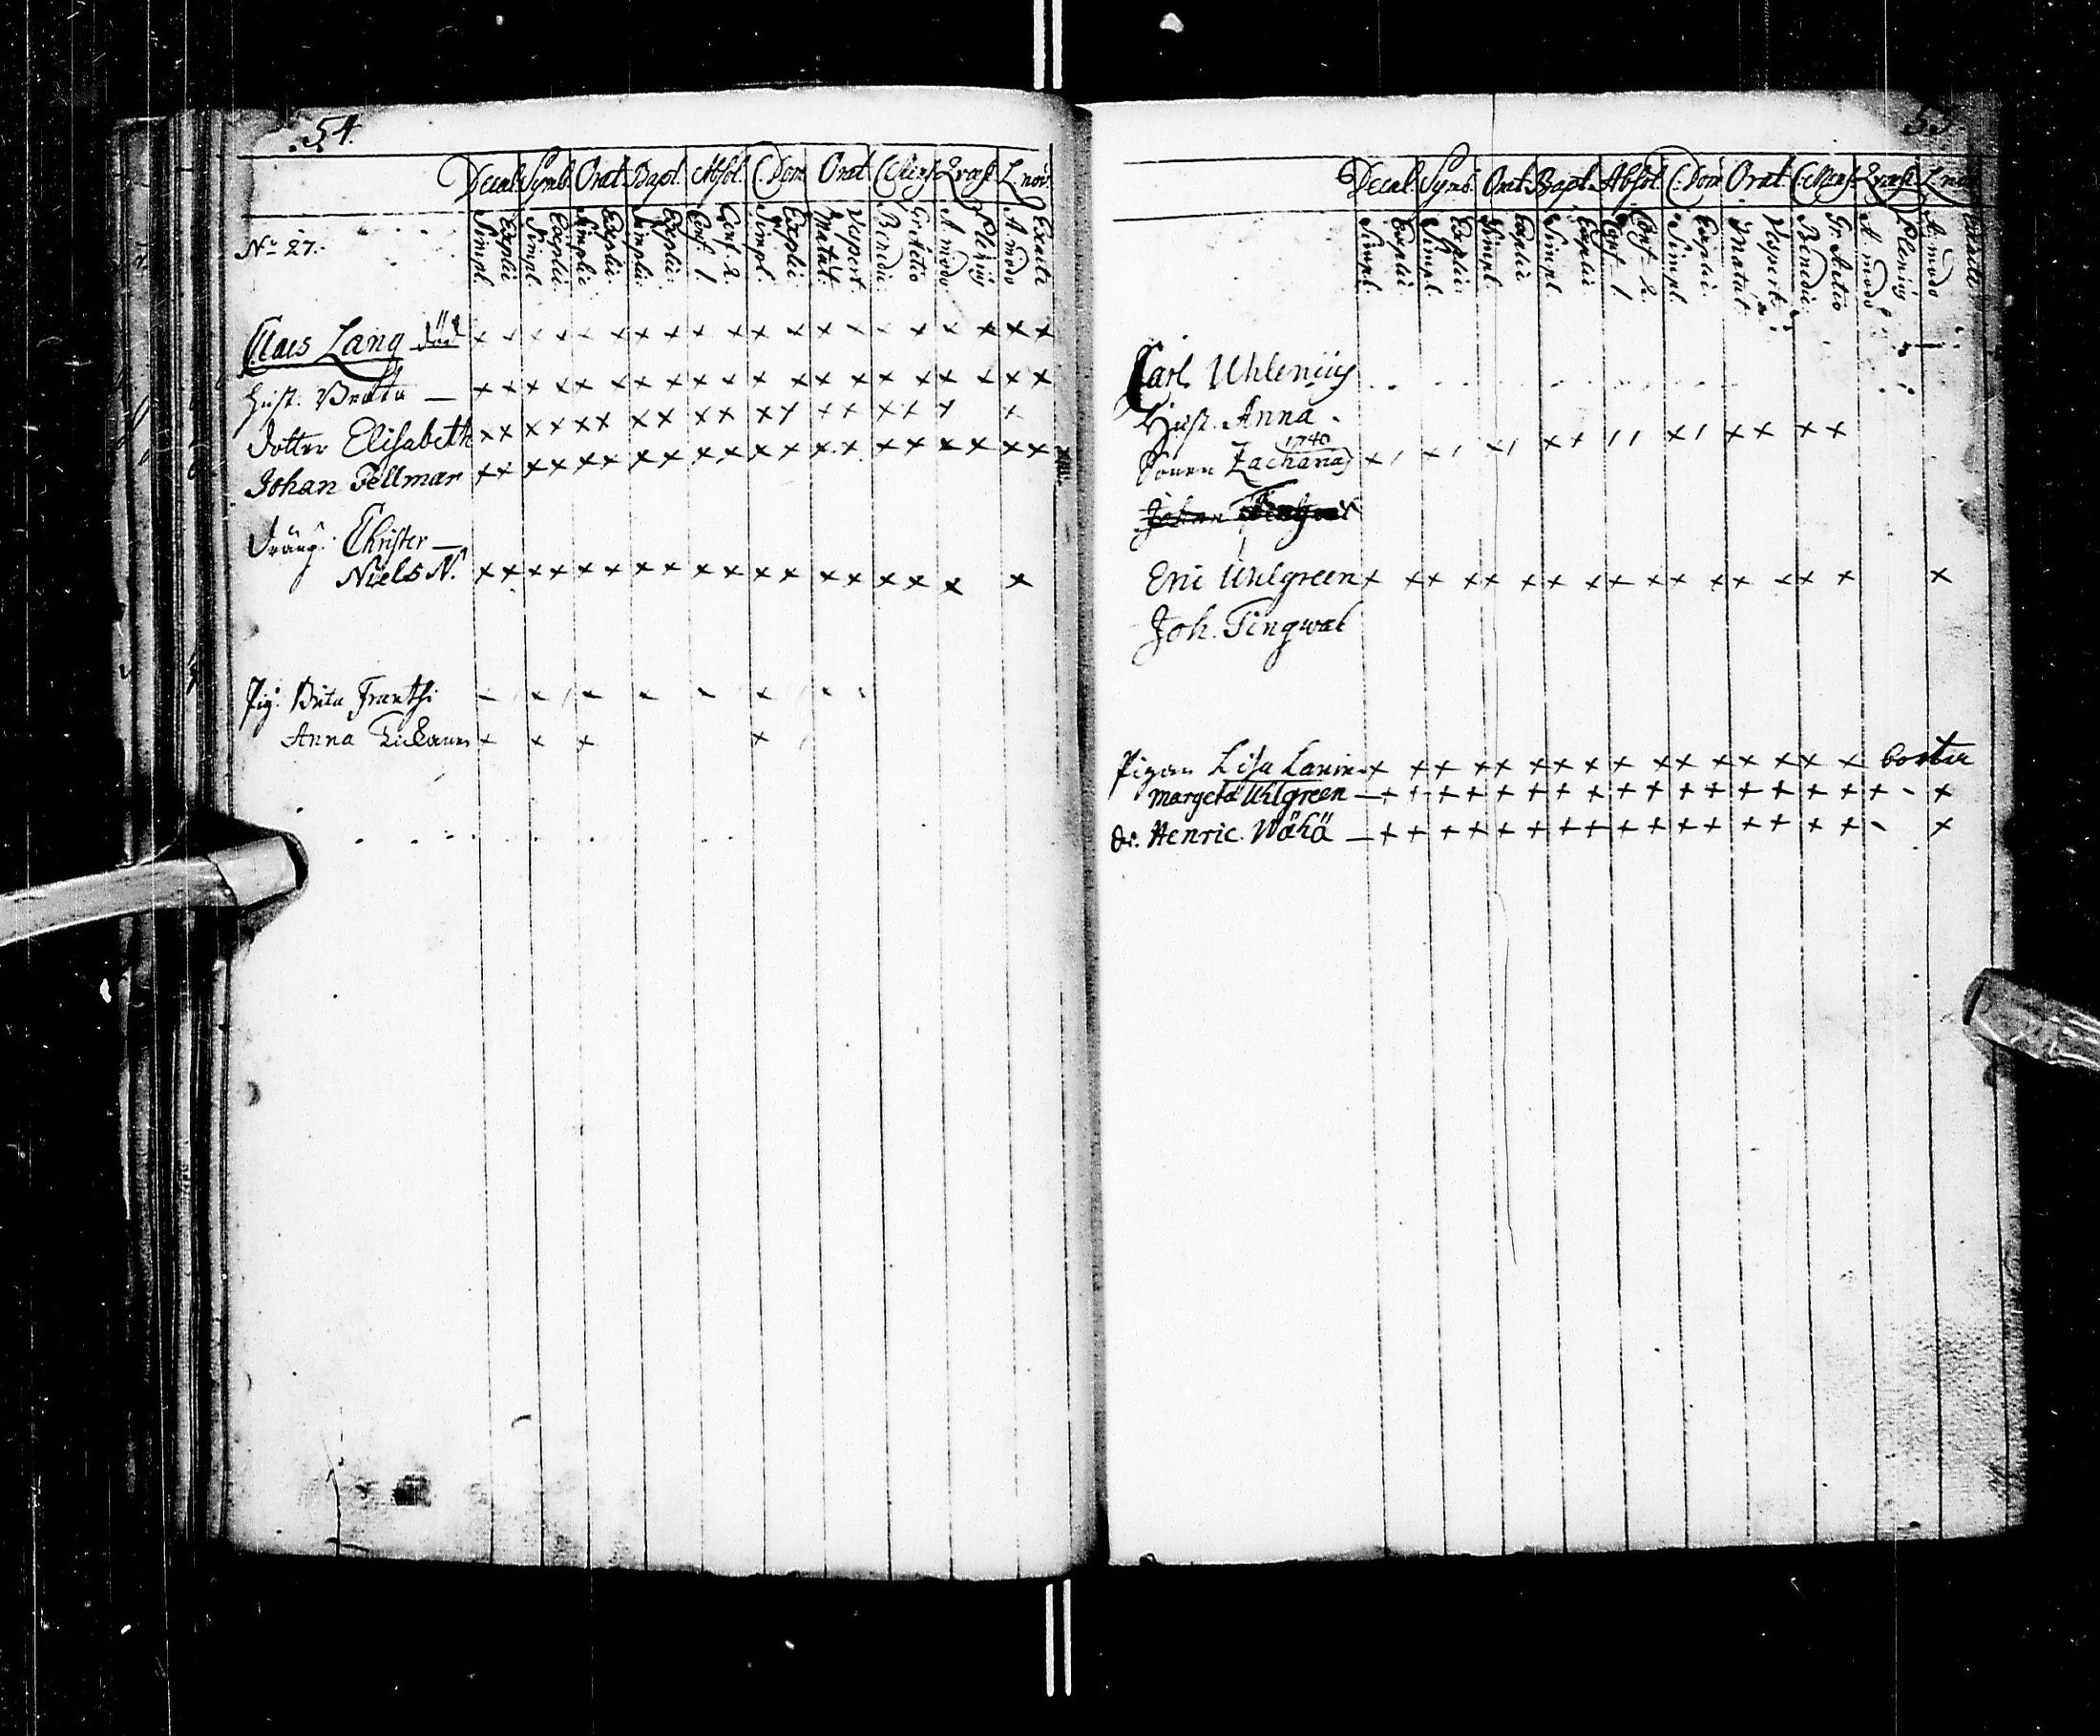 54.
Decal Symb. Orat. Bapt. Absol. C. Dom. Orat. C. Mens. Quæst. L. nov.
Simpl. Explic. Simpl. Explic. Simplic. Explic. Simplic. Explic. Conf. 1 Conf. 2. Simpl. Explic. Matut. Vespert. Benedic. Gr. Actio A. modo Plenius A. modo Exacte
No 27.
Claes Lang död
Hust. Beata —
dotter Elisabeth
Johan Fellman
dräng. Christer —
Niels N.
Pig. Brita Frantsi
Anna
55
Decal Symb. Orat. Bapt. Absol. C. Dom. Orat. C. Mens. Quæst. L. nov
Simpl. Explic. Simpl. Explic. Simpl. Explic. Simpl. Explic. Conf. 1 Conf. 2. Simpl. Explic. Matut. Vespert. Benedic. Gr. Actio A. modo Plenius A. modo
Carl Uhlenius
Hust. Anna
1740
Sonen Zacharias
Johan Tingwal
Eric Uhlgreen
Joh. Tingwal
Pigan Lisa borta
Margeta Uhlgreen —
dr. Henric Wähä —